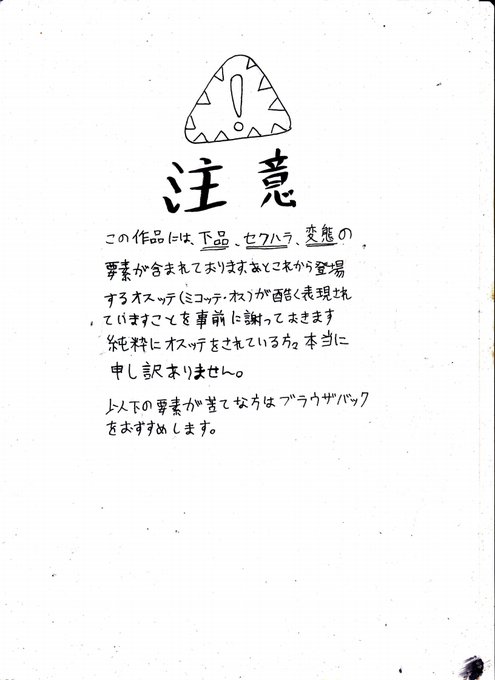 !
注意
この作品には、下品、セクハラ、変態の
要素が含まれております、あとこれから登場
するオスッテ(ミコッテ・オス)が酷く表現され
ていますことを事前に謝っておきます
純粋にオスッテをされている方々本当に
申し訳ありません。
以下の要素が苦てな方はブラウザバック
をおすすめします。